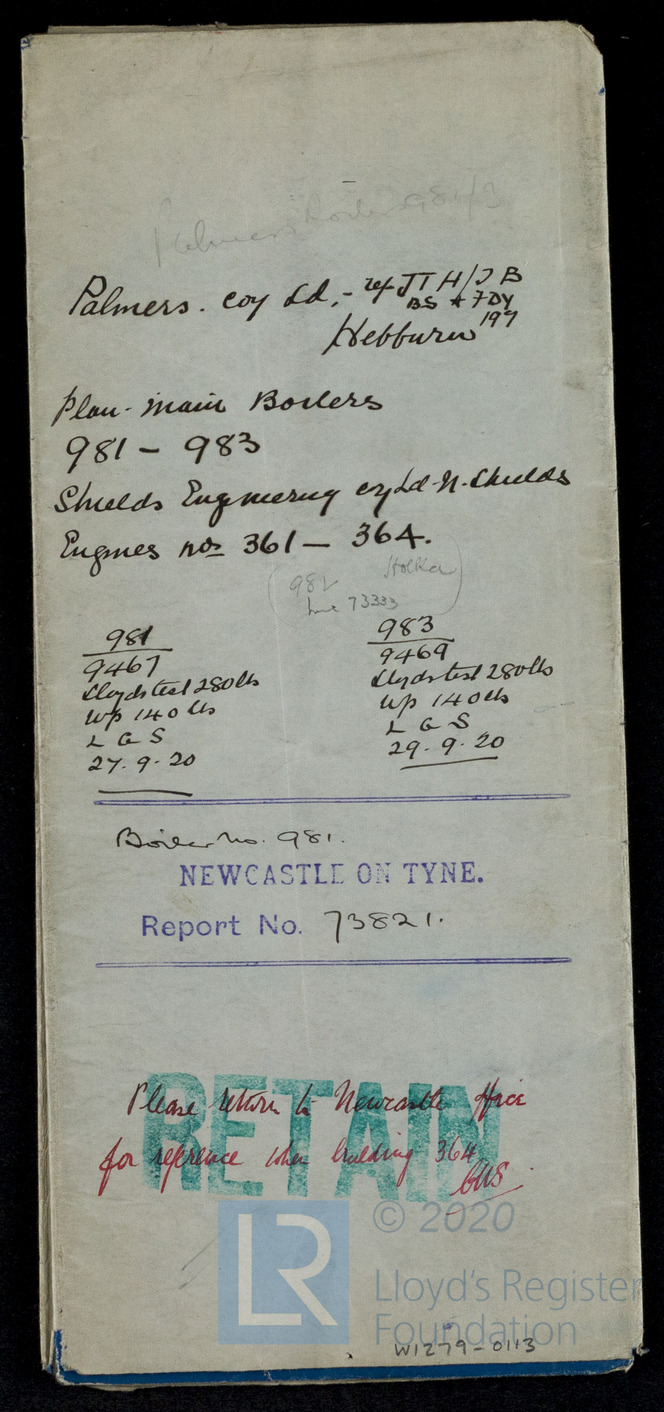 Palmers Boiler 981/3
Palmers. Coy Ld,- ref JTH/JB
BS & 7 DY
Hebburn 197
Plan- Main Boilers
981 - 983
Shields Engineering Coy Ld N. Shields
Engines nos 361 - 364.
982 Holka
73333
981
9467
Lloyds test 280 lbs
WP 140 lbs
L G S
27. 9. 20
983
9469
Lloyds test 280 lbs
WP 140 lbs
L G S
29. 9. 20
Boiler No. 981.
NEWCASTLE ON TYNE.
Report No. 73821.
RETAIN
Please return to Newcastle Office
for reference when building 364
© 2020
LR
Lloyd's Register
Foundation
W1279-0113